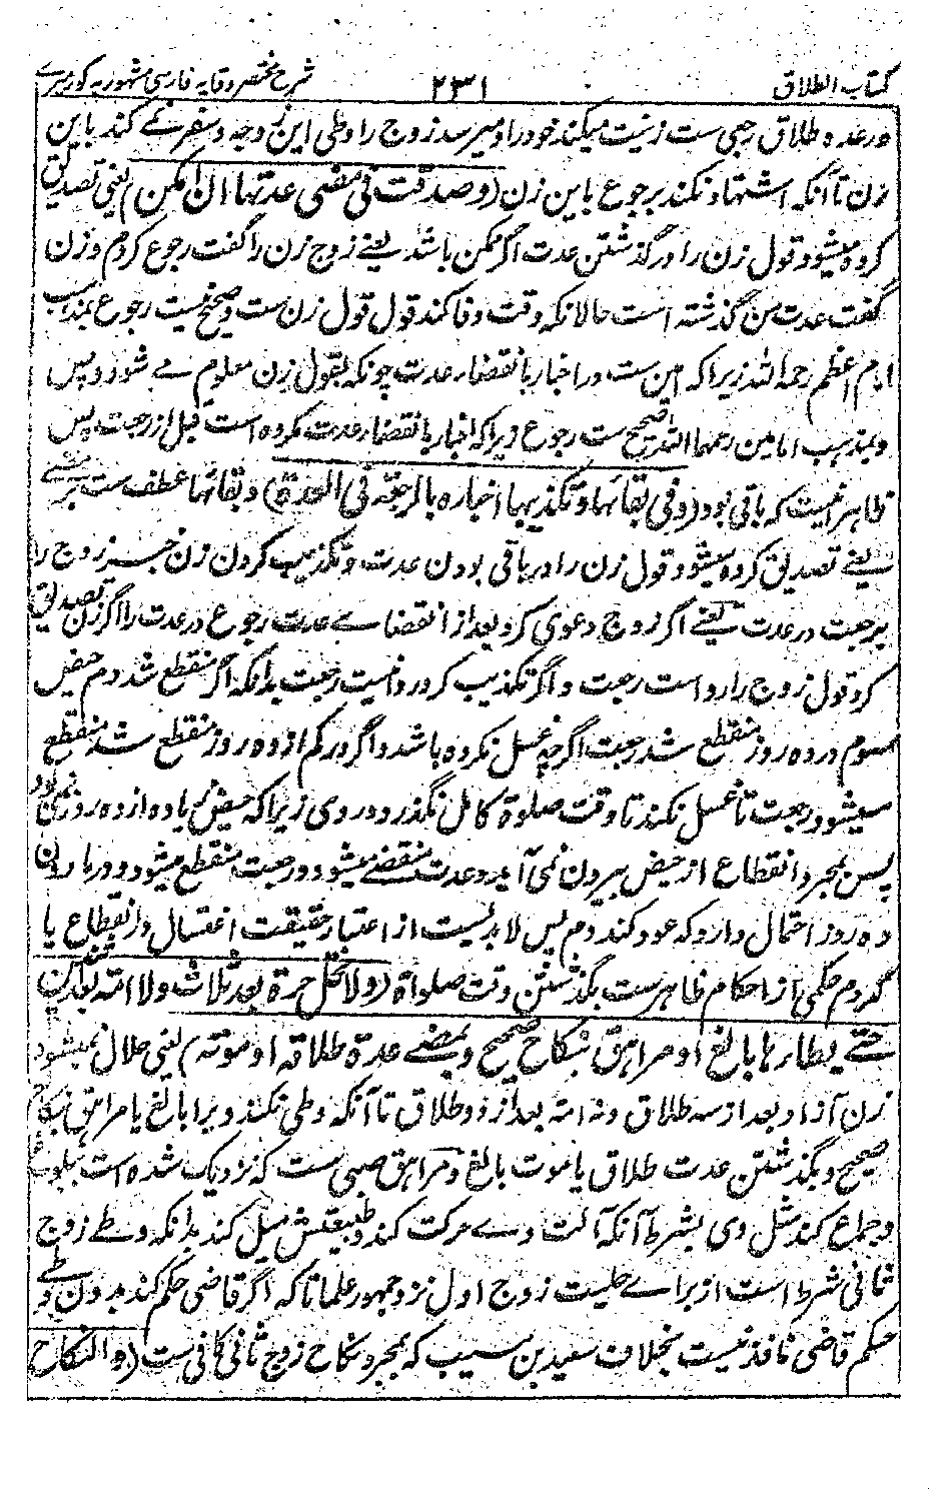 کتاب الطلاق ۲۳۱ شرح مختصر وقایه فارسی مشهور به کور میرے
در عده طلاق رجعی ست زینت میکند خود را و میرسد زوج را وطی این زوجه و سفر نے کند باین
زن تا آنکه اشتهاد نکند بر جوع باین زن (و صدقت فی مضی عدتها ان امکن) یعنی تصدیق
کرده میشود قول زن را در گذشتن عدت اگر ممکن باشد یعنے زوج زن را گفت رجوع کردم و زن
گفت عدت من گذشته است حالانکه وقت وفا کند قول قول زن ست و صحیح نیست رجوع بمذهب
امام اعظم رحمه الله زیرا که امین ست در اخبار بانقضاء عدت چونکه بقول زن معلوم مے شود و پس
و بمذهب امامین رحمهما الله صحیح ست رجوع زیرا که اخبار بانقضاء عدت کرده است قبل از رجعت پس
ظاهر انیست که باقی بود (و فی بقائها و تکذیبها اخباره بالرجعة فی العدة) و بقائها عطف ست بر مضے
یعنے تصدیق کرده میشود قول زن را در باقی بودن عدت و تکذیب کردن زن خبر زوج را
برجعت در عدت یعنے اگر زوج دعوی کرد بعد از انقضاے عدت رجوع در عدت را اگر زن تصدیق
کرد قول زوج را رواست رجعت و اگر تکذیب کرد روا نیست رجعت بدانکه اگر منقطع شد دم حیض
سوم در ده روز منقطع شد رجعت اگرچه غسل نکرده باشد و اگر در کم از ده روز منقطع شد منقطع
میشود رجعت تا غسل نکند تا وقت صلوة کامل نگذرد در وی زیرا که حیض زیاده از ده روز نمی بود
پس بمجرد انقطاع از حیض بیرون می آید و عدت منقضے میشود و رجعت منقطع میشود و در ما دون
ده روز احتمال دارد که عود کند دم پس لابدیست از اعتبار حقیقت اغتسال و انقطاع یا
لزوم حکمی از احکام ظاهرست بگذشتن وقت صلواة (ولا تحل حرة بعد ثلاث ولا امة بعد ثنتین
حتے یطأها بالغ او مراهق بنکاح صحیح و بمضے عدة طلاقه او موته) یعنی حلال نمیشود
زن آزاد بعد از سه طلاق و نه امه بعد از دو طلاق تا آنکه وطی نکند ویرا بالغ یا مراهق بنکاح
صحیح و بگذشتن عدت طلاق یا موت بالغ و مراهق صبی ست که نزدیک شده است ببلوغ
و جماع کند مثل وی بشرط آنکه آلت وے حرکت کند و طبیعتش میل کند بدانکه وطے زوج
ثانی شرط است از براے حلیت زوج اول نزد جمهور علما تا که اگر قاضی حکم کند بدون وطے
حکم قاضی نافذ نیست بخلاف سعید بن مسیب که بمجرد نکاح زوج ثانی کافی ست (و النکاح